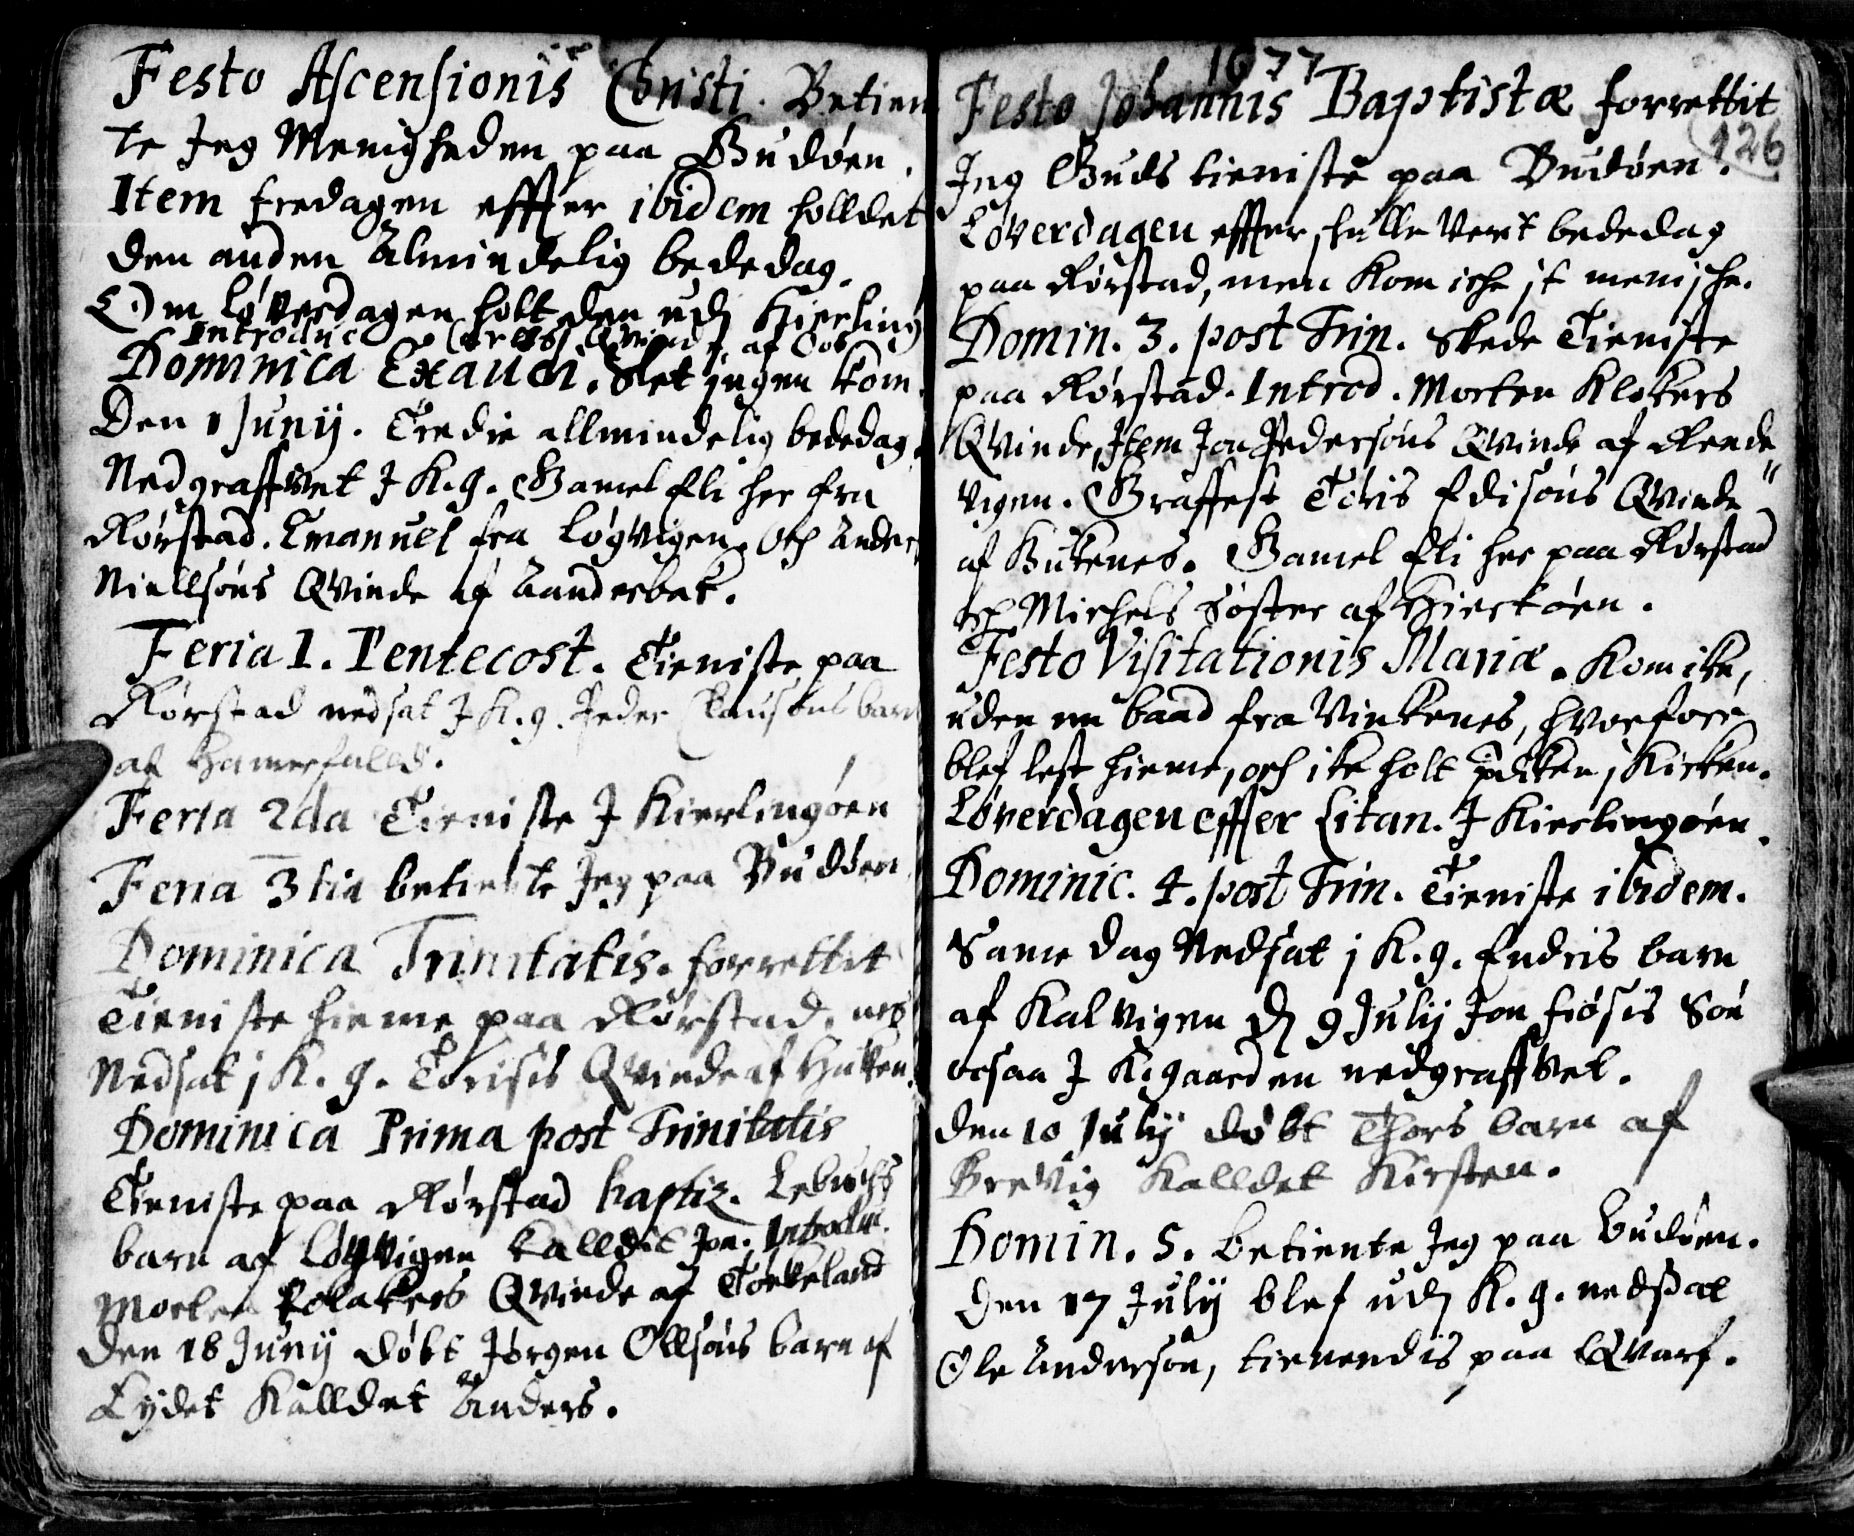 Festo Ascensionis Christi. Betien
te Jeg Menigheden paa Budøen.
Item fredagen effter ibidem holldet
den anden Almindelig bededag.
Om Løverdagen holt den udj Kierling
Introduc qvinde af
Dominica Exaudi. Slet ingen kom.
Den 1 Junij. Tredie allmindelig bededag.
Nedgraffvet J K.g. Gamel Eli her fra
Rørstad. Emanuel fra Løgvigen. Och Anders
Niellsøns Qvinde af Aanderbak.
Feria 1. Pentecost. Tieniste paa
Rørstad nedsat J K.g. Peder Clausøns barn
af Hamerfalld.
Feria 2da Tieniste J Kierlingøen
Feria 3tia betiente Jeg paa Budøen
Dominica Trinitatis. forrettit
Tieniste hieme paa Rørstad.
Nedsat j K.g. Torisis Qvinde af
Dominica Prima post Trinitatis
Tieniste paa Rørstad baptiz.
barn af Løgvigen kalldet Jon. Introdu.
Morten Qvinde af Torkeland
Den 18 Junij døbt Jørgen Ollsøns barn af
Eydet Kalldet Anders.
1677
126
Festo Johannis Baptistæ forrettit
Jeg Guds tieniste paa Budøen.
Løverdagen effter skulle Verit bededag
paa Rørstad, men kom iche it menische.
Domin. 3. post Trin. Skede Tieniste
paa Rørstad. Introd. Morten Klokers
Qvinde, Item Jon Pedersøns Qvinde af Rende
vigen. Graffest Toris Edisøns Qvinde
af . Gamel Eli her paa Rørstad
och Michels Søster af Hierkøen.
Festo Visitationis Mariæ. Kom ike,
uden en baad fra Vinkenes, hvorfore
blef lest hieme, och ike holt j Kirken.
Løverdagen effter Litan. J Kierlingøen.
Dominic. 4. post Trin. Tieniste ibidem.
Same dag Nedsat j K.g. Endris barn
af Kalvigen d 9 Julij Jon Søn
ocsaa J K.gaarden nedgraffvet.
den 10 Julij døbt Thors barn af
Brevig Kalldet Kirsten.
Domin. 5. betiente Jeg paa Budøen.
Den 17 Julij blef udj K.g. nedsat
Ole Andersøn, tienendis paa Qvarf.